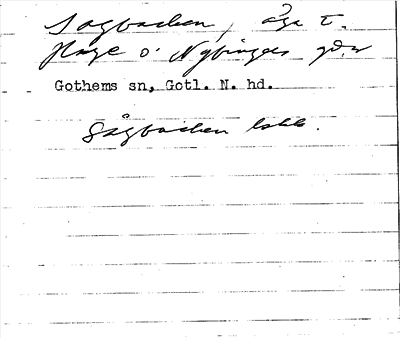 Sågbacken, äga t.
Hage o. Nybingels gdr
Gothems sn, Gotl. N. hd.
Sågbacken lokk.